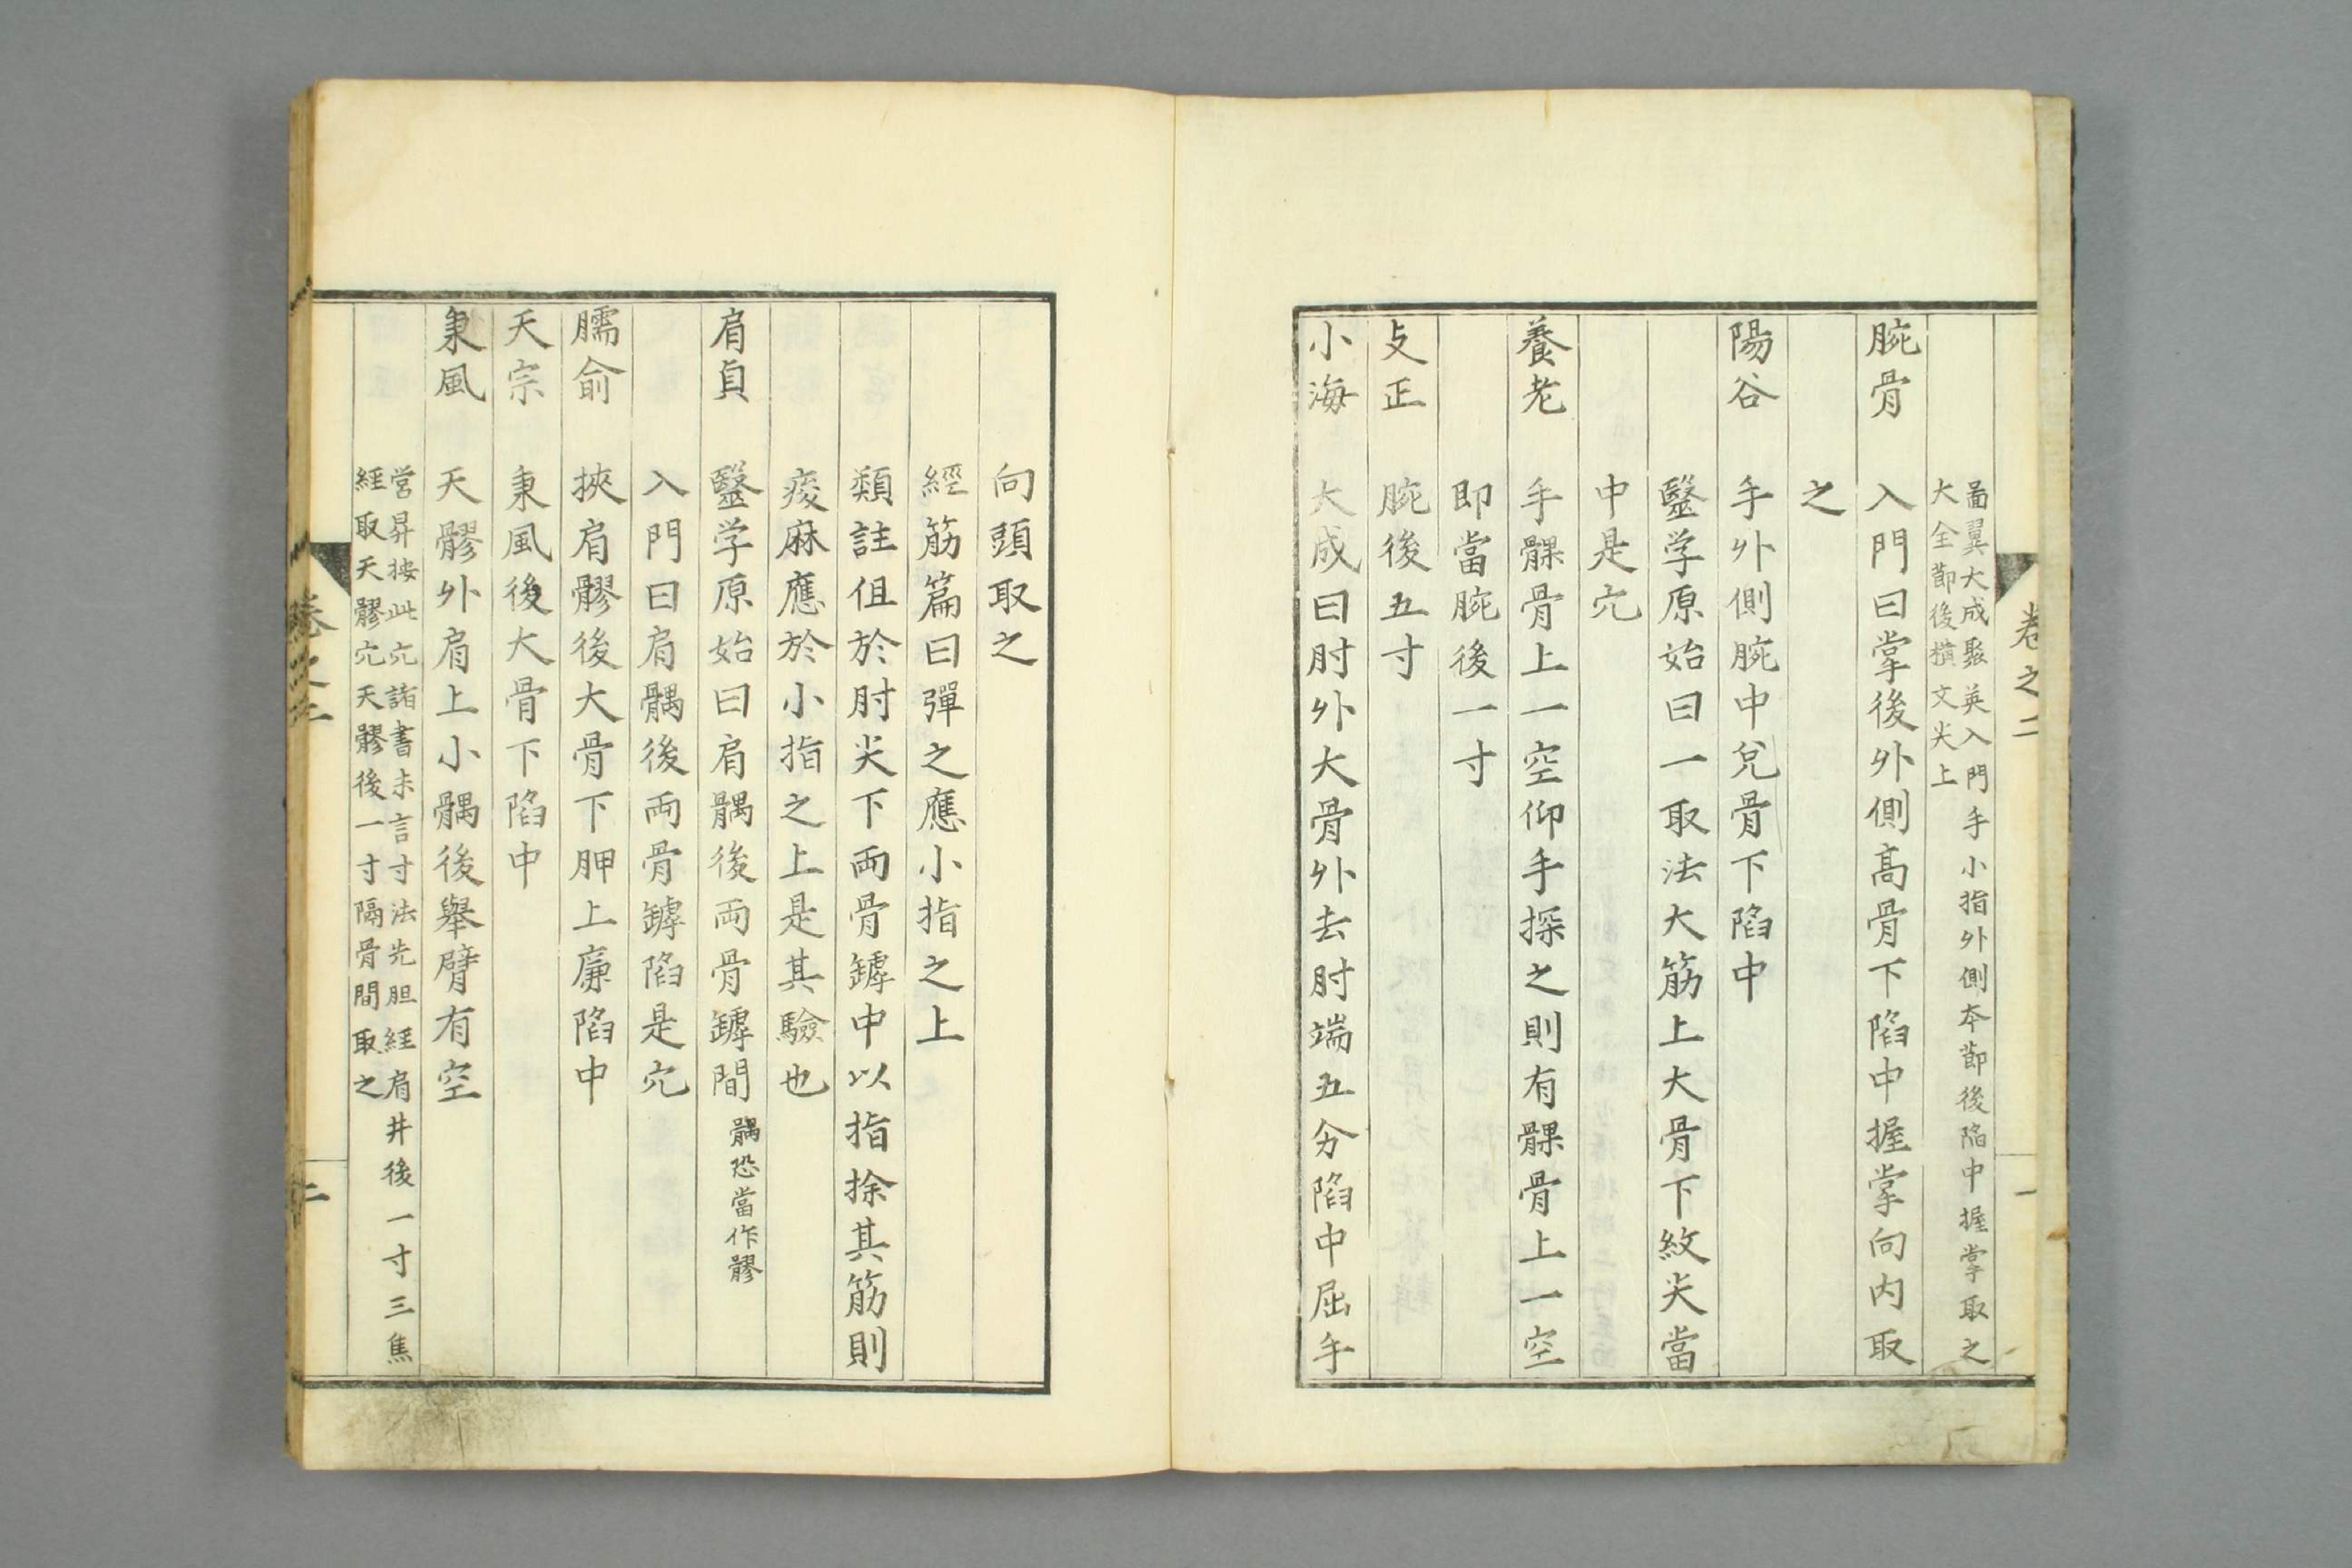 卷之二
一
啚翼大成聚英入門手小指外側本節後陷中握掌取之
大全節後橫文尖上
腕骨 入門曰掌後外側高骨下陷中握掌向内取
之
陽谷 手外側腕中兌骨下陷中
醫学原始曰一取法大筋上大骨下紋尖當
中是穴
養老 手髁骨上一空仰手探之則有髁骨上一空
即當腕後一寸
支正 腕後五寸
小海 大成曰肘外大骨外去肘端五分陷中屈手
向頭取之
經筋篇曰彈之應小指之上
類註但於肘尖下両骨罅中以指捈其筋則
痠麻應於小指之上是其驗也
肩貞 醫学原始曰肩髃後両骨罅間 髃恐當作髎
入門曰肩髃後両骨罅陷是穴
臑俞 挾肩髎後大骨下胛上廉陷中
天宗 秉風後大骨下陷中
秉風 天髎外肩上小髃後舉臂有空
営昇按此穴諸書未言寸法先胆經肩井後一寸三焦
經取天髎穴天髎後一寸隔骨間取之
卷之二
二